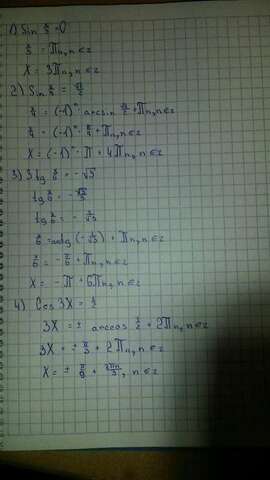 1) Sin x/3 = 0
x/3 = πn, n ∈ z
X = 3πn, n ∈ z
2) Sin x/4 = √2/2
x/4 = (-1)ⁿ · arcsin √2/2 + πn, n ∈ z
x/4 = (-1)ⁿ · π/4 + πn, n ∈ z
X = (-1)ⁿ · π + 4πn, n ∈ z
3) 3tg x/6 = -√3
tg x/6 = -√3/3
tg x/6 = - 1/√3
x/6 = arctg (-1/√3) + πn, n ∈ z
x/6 = - π/6 + πn, n ∈ z
X = - π + 6πn, n ∈ z
4) Cos 3X = 1/2
3X = ± arccos 1/2 + 2πn, n ∈ z
3X = ± π/3 + 2πn, n ∈ z
X = ± π/9 + 2πn/3, n ∈ z